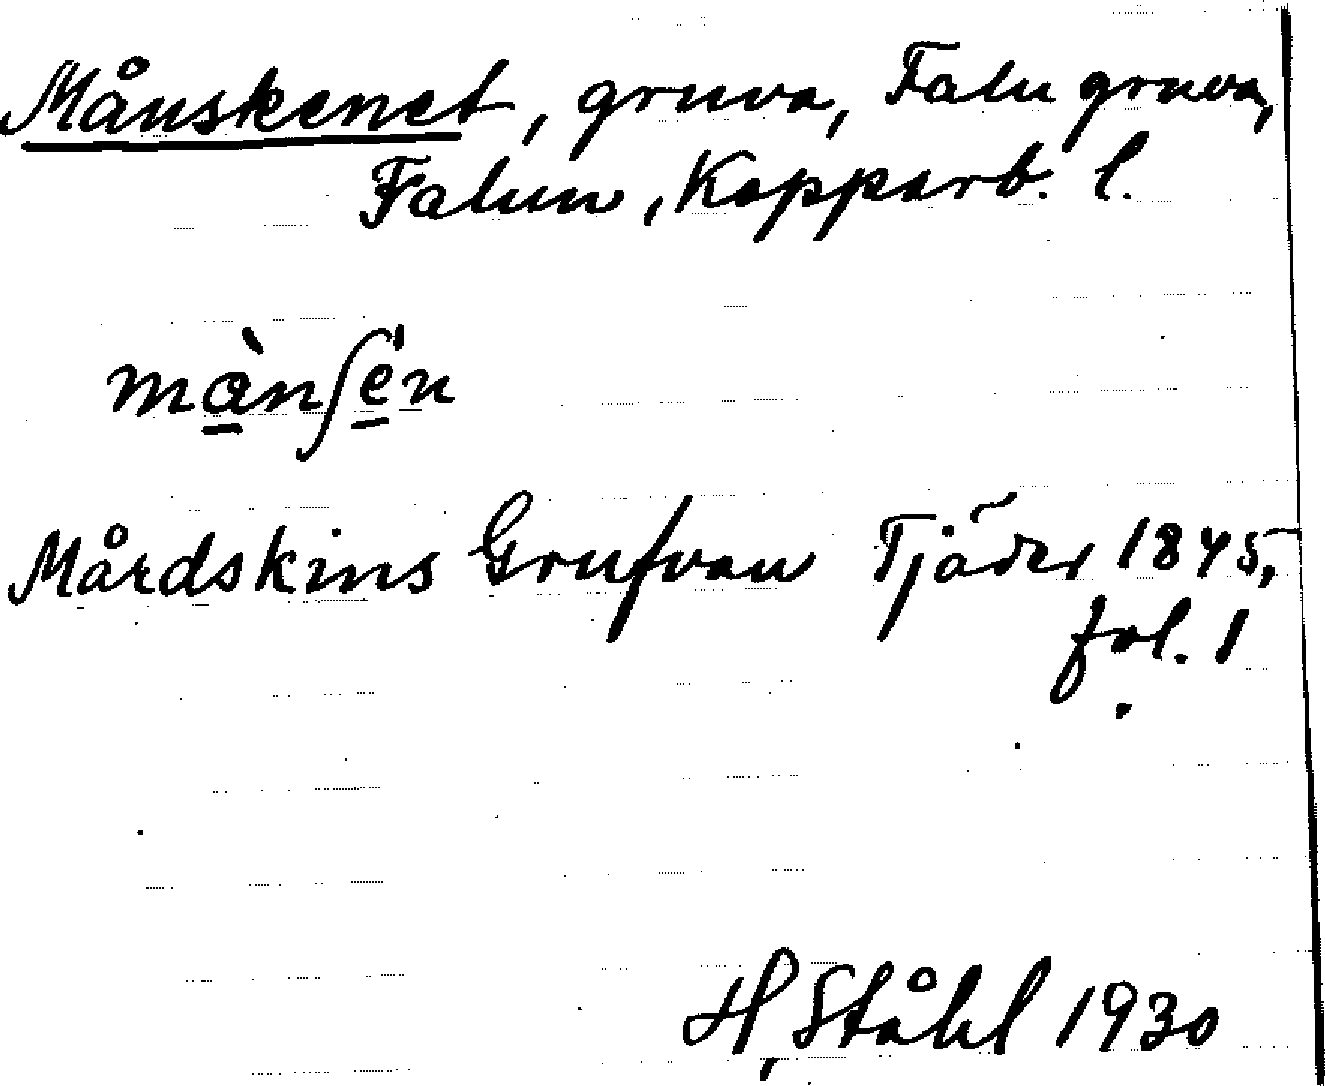 Månskenet, gruva, Falu gruva,
Falun, Kopparb. l.
mànʃén
Mårdskins Grufvan Tjäder 1845,
fol. 1
H, Ståhl 1930